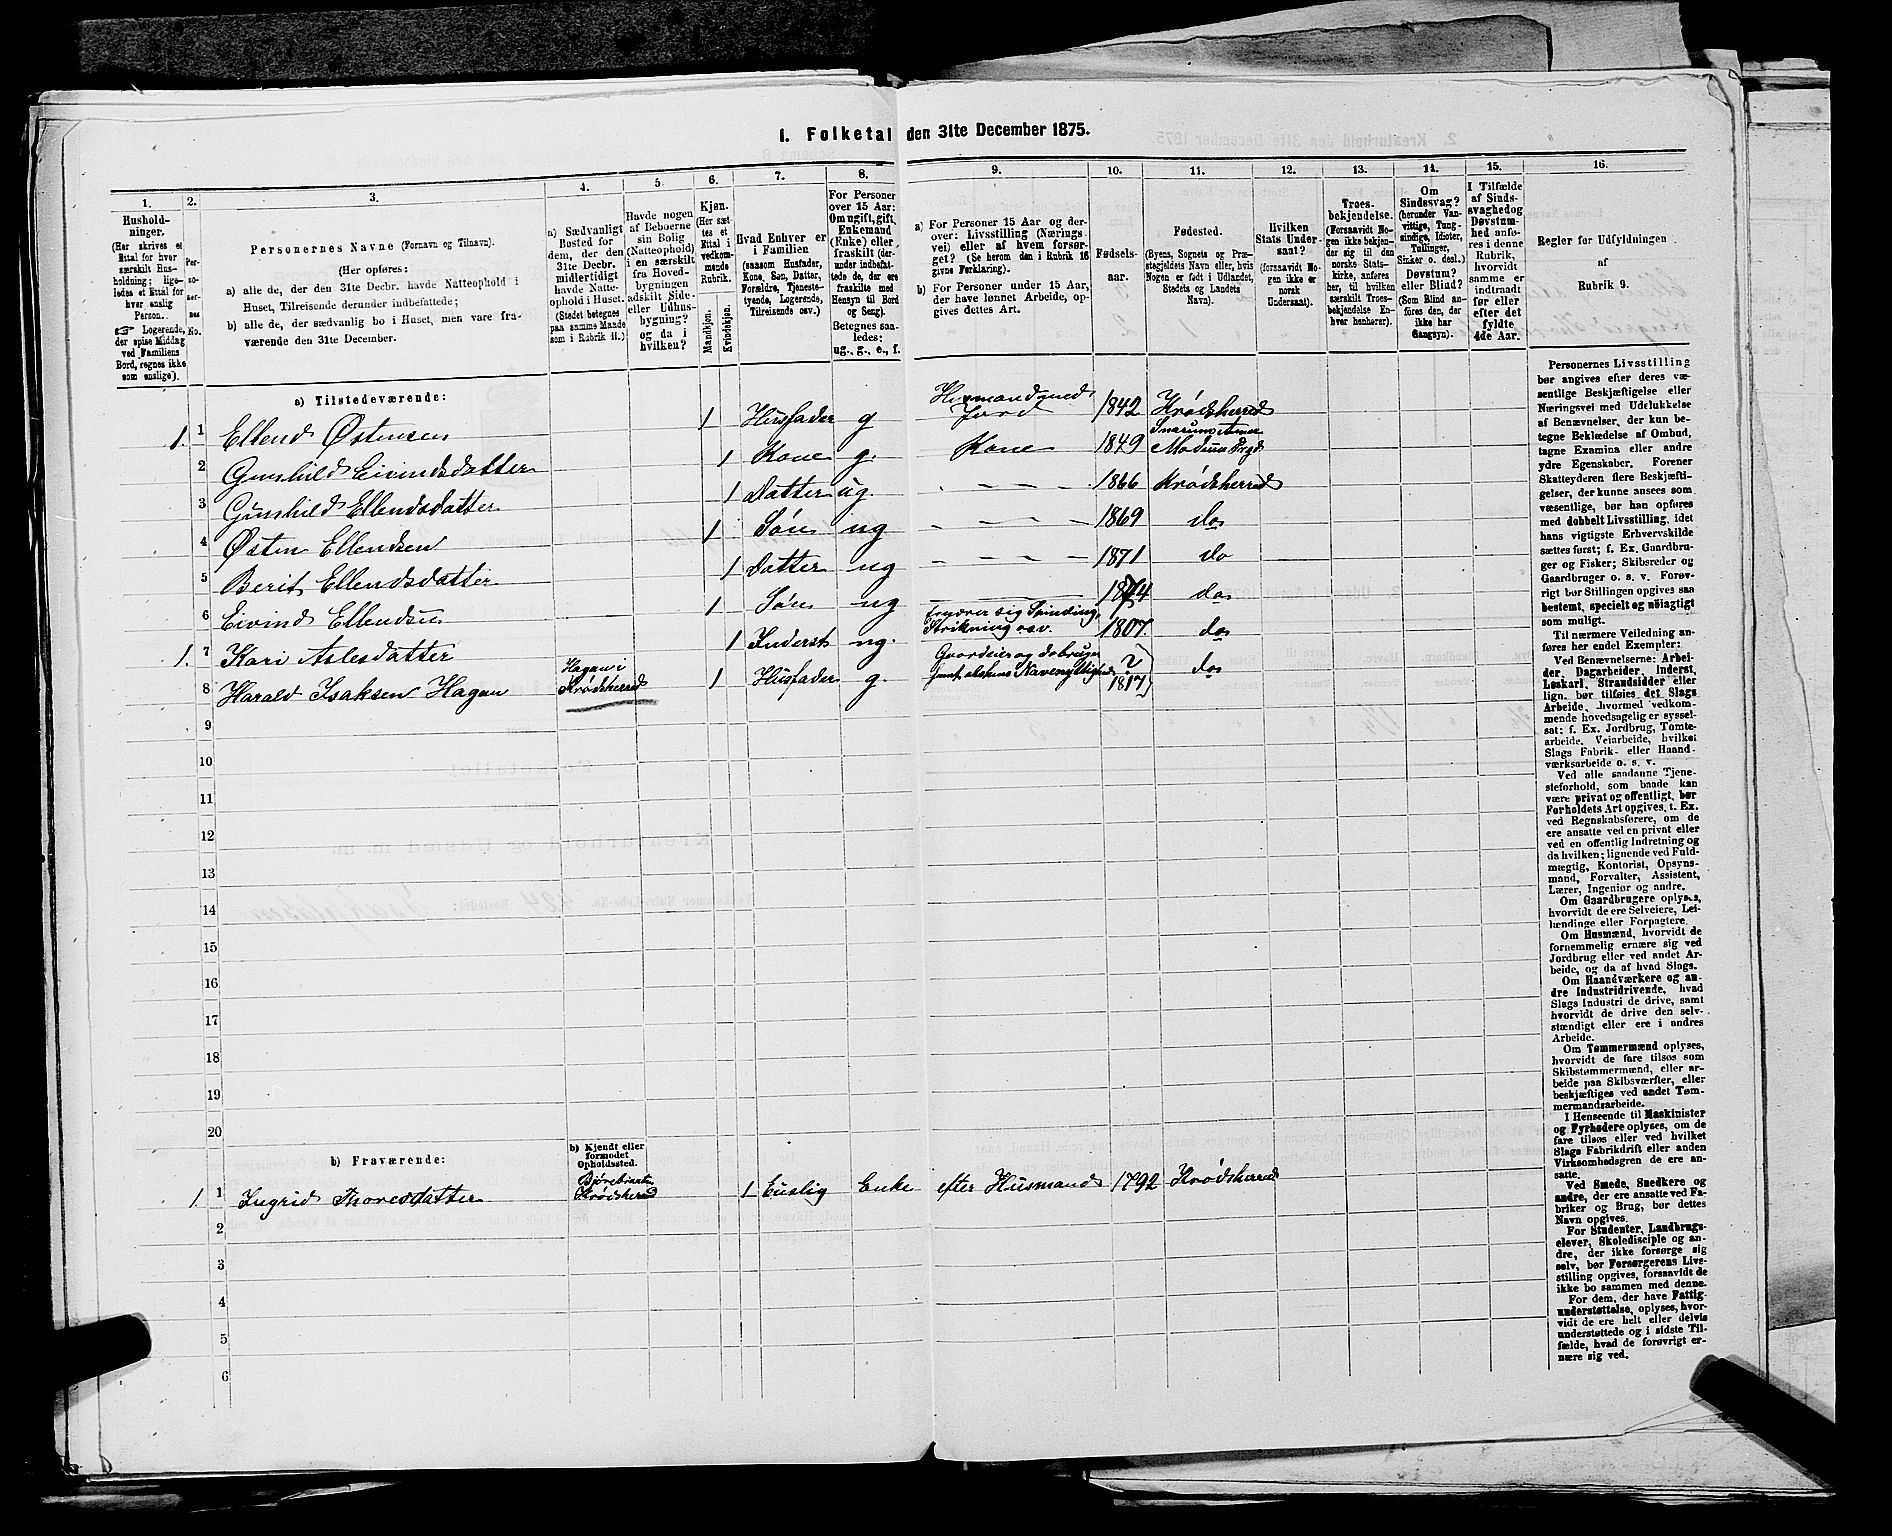 1. Folketal den 31te December 1875.
1.
Hushold-
ninger.
(Her skrives et
Ettal for hver
særskilt Hus-
holdning; lige-
ledes et Ettal for
hver enslig
Person.
Logerende,
der spise Middag
ved Familiens
Bord, regnes ikke
som enslige).
2.
Per-
so-
ner-
nes
No.
3.
Personernes Navne (Fornavn og Tilnavn).
(Her opføres:
a) alle de, der den 31te Decbr. havde Natteophold i
Huset, Tilreisende derunder indbefattede;
b) alle de, der sædvanlig bo i Huset, men vare fra-
værende den 31te December.
4.
a) Sædvanligt
Bosted for
dem, der den
31te Decbr.
midlertidigt
havde Natte-
ophold i Huset.
(Stedet betegnes
paa samme Maade
som i Rubrik 11.)
5.
Havde nogen
af Beboerne
sin Bolig
(Natteophold)
i en særskilt
fra Hoved-
bygningen
adskilt Side-
eller Udhus-
bygning?
og da i
hvilken?
6.
Kjøn.
(Her sæt-
tes et
Ettal i
vedkom-
mende
Rubrik.
Mandkjøn.
Kvindekjøn.
7.
Hvad Enhver er
i Familien
(saasom Husfader,
Kone, Søn, Datter,
Forældre, Tjeneste-
tyende, Logerende,
Tilreisende osv.)
8.
For Personer
over 15 Aar:
Om ugift, gift,
Enkemand
(Enke) eller
fraskilt (der-
under indbefat-
tede de, der ere
fraskilte med
Hensyn til Bord
og Seng).
Betegnes saa-
ledes:
ug., g., e., f.
9.
a) For Personer 15 Aar og der-
over: Livsstilling (Nærings-
vei) eller af hvem forsør-
get? (Se herom den i Rubrik 16
givne Forklaring).
b) For Personer under 15 Aar,
der have lønnet Arbeide, op-
gives dettes Art.
10.
Fødsels-
aar.
11.
Fødested.
(Byens, Sognets og Præ-
stegjeldets Navn eller, hvis
Nogen er født i Udlandet,
Stedets og Landets
Navn).
12.
Hvilken
Stats Under-
saat?
(forsaavidt No-
gen ikke er
norsk
Undersaat).
13.
Troes-
bekjendelse.
(Forsaavidt No-
gen ikke bekjen-
der sig til den
norske Stats-
kirke, anføres
her, til hvilken
særskilt Troes-
bekjendelse En-
hver henhører).
14.
Om
Sindssvag?
(herunder Van-
vittige, Tung-
sindige, Idioter,
Tullinger,
Sinker o. desl.)
Døvstum?
eller Blind?
(Som Blind an-
føres den, der
ikke har
Gangsyn).
15.
I Tilfælde
af Sinds-
svaghed og
Døvstum-
hed anfø-
res i denne
Rubrik,
hvorvidt
samme er
indtraadt
før eller
efter det
fyldte
4de Aar.
16.
Regler for Udfyldningen
af
Rubrik 9.
a) Tilstedeværende:
1. 1 Ellend Østensen 1 Husfader g Husmand med Jord 1842 Krødsherred
2 Gunhild Eivindsdatter 1 Kone g. Kone 1849 Snarum Annex Modum Prgd
3 Gunhild Ellendsdatter 1 Datter ug. - - - 1866 Krødsherred
4 Østen Ellendsen 1 Søn ug - - - 1869 do
5 Berit Ellendsdatter 1 Datter ug - - - 1871 do
6 Eivind Ellendsen 1 Søn ug 1874 do
1. 7 Kari Aslesdatter 1 Inderst ug. Ernærer sig Spinding, Strikning osv. 1807. do
8 Harald Isaksen Hagan Hagan i Krødsherred 1 Husfader g. 1817 ? do
9
10
11
12
13
14
15
16
17
18
19
20
b) Fraværende:
b) Kjendt eller
formodet
Opholdssted.
1. 1 Ingrid Thoresdatter Krødsherred 1 Enslig Enke efter Husmand 1792 Krødsherred
2
3
4
5
6
Personernes Livsstilling
bør angives efter deres væ-
sentlige Beskjæftigelse eller
Næringsvei med Udelukkelse
af Benævnelser, der kun be-
tegne Beklædelse af Ombud,
tagne Examina eller andre
ydre Egenskaber. Forener
Skatteyderen flere Beskjæfti-
gelser, der kunne ansees som
væsentlige, bør han opføres
med dobbelt Livsstilling, idet
hans vigtigste Erhvervskilde
sættes først; f. Ex. Gaardbru-
ger og Fisker; Skibsreder og
Gaardbruger o. s. v. Forøv-
rigt bør Stillingen opgives saa
bestemt, specielt og nøiagtigt
som muligt.
Til nærmere Veiledning an-
føres her endel Exempler:
Ved Benævnelserne: Arbei-
der, Dagarbeider, Inderst,
Løskarl, Strandsidder eller
lign. bør tilføies det Slags
Arbeide, hvormed vedkom-
mende hovedsagelig er syssel-
sat; f. Ex. Jordbrug, Tomte-
arbeide, Veiarbeide, hvilket
Slags Fabrik- eller Haand-
værksarbeide o. s. v.
Ved alle saadanne Tjene-
steforhold, som baade kan
være privat og offentligt, bør
Forholdets Art opgives, t. Ex.
ved Regnskabsførere, om de
ere ansatte ved en privat eller
ved en offentlig Indretning og
da hvilken; lignende ved Fuld-
mægtig, Kontorist, Opsyns-
mand, Forvalter, Assistent,
Lærer, Ingeniør og andre.
Om Gaardbrugere oplyses,
hvorvidt de ere Selveiere, Lei-
lændinge eller Forpagtere.
Om Husmænd, hvorvidt de
fornemmelig ernære sig ved
Jordbrug eller ved andet Ar-
beide, og da af hvad Slags.
Om Haandværkere og an-
dre Industridrivende, hvad
Slags Industri de drive, samt
hvorvidt de drive den selv-
stændigt eller ere i andres
Arbeide.
Om Tømmermænd oplyses,
hvorvidt de fare tilsøs som
Skibstømmermænd, eller ar-
beide paa Skibsværfter, eller
beskjæftiges ved andet Tøm-
mermandsarbeide.
I Henseende til Maskinister
og Fyrbødere oplyses, om de
fare tilsøs eller ved hvilket
Slags Fabrikdrift eller anden
Virksomhedsgren de ere an-
satte.
Ved Smede, Snedkere og
andre, der ere ansatte ved Fa-
briker og Brug, bør dettes
Navn opgives.
For Studenter, Landbrugs-
elever, Skoledisciple og an-
dre, der ikke forsørge sig
selv, bør Forsørgerens Livs-
stilling opgives, forsaavidt de
ikke bo sammen med denne.
For dem, der have Fattig-
understøttelse, oplyses, hvor-
vidt de ere helt eller delvis
understøttede og i sidste Til-
fælde, hvad de forøvrigt er-
nære sig ved.